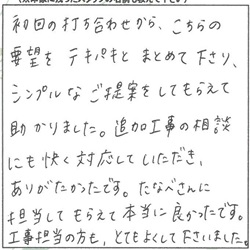 初回の打ち合わせから、こちらの
要望を テキパキと まとめて 下さり、
シンプルな ご提案を してもらえて
助かりました。追加工事の相談
にも 快く 対応して いただき、
ありがたかったです。たなべさんに
担当して もらえて 本当に 良かったです。
工事担当の方も、とてもよくして 下さいました